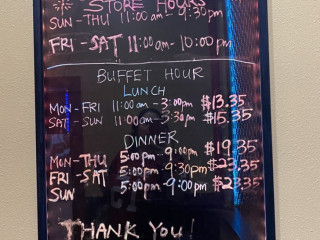 STORE HOURS
SUN - THU 11:00 am - 9:30 pm
FRI - SAT 11:00 am - 10:00 pm
BUFFET HOUR
LUNCH
MON - FRI 11:00 am - 3:00 pm $13.35
SAT - SUN 11:00 am - 3:30 pm $15.35
DINNER
MON - THU 5:00 pm - 9:00 pm $19.35
FRI - SAT 5:00 pm - 9:30 pm $23.35
SUN 5:00 pm - 9:00 pm $23.35
THANK YOU!